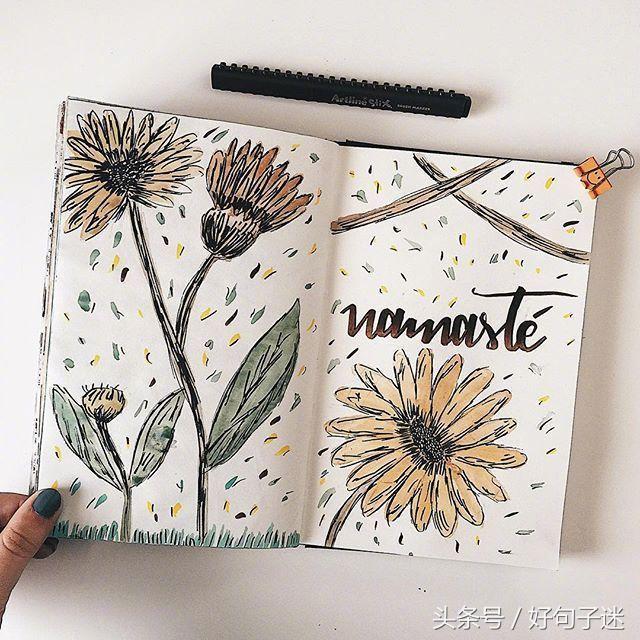 Artline Stix BRUSH MARKER
namasté
头条号 / 好句子迷